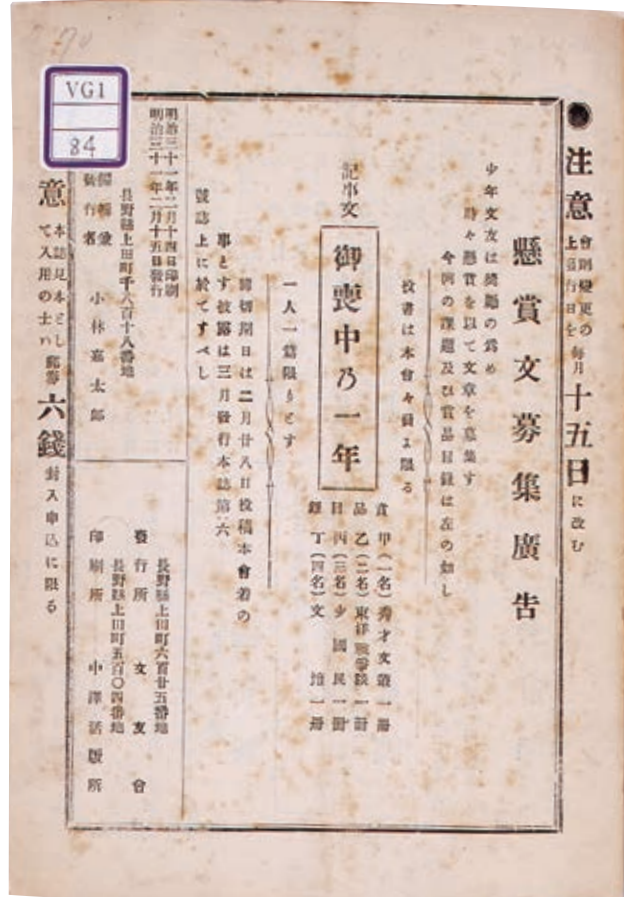 注意 會則變更の上發行日を毎月十五日に改む
懸賞文募集廣告
少年文友は奬勵の爲め
時々懸賞を以て文章を募集す
今回の課題及ひ賞品目錄は左の如し
投書は本會々員に限る
記事文
御喪中乃一年
賞品目錄
甲(一名)秀才文叢一册
乙(二名)東洋戰爭談一册
丙(三名)少國民一册
丁(四名)文 一册
一人一篇限りとす
締切期日は二月廿八日投稿本會着の
事とす披露は三月發行本誌第六
號誌上に於てすべし
明治三十一年二月十四日印刷
明治三十一年二月十五日發行
長野縣上田町千八百十八番地
編輯兼發行者 小林嘉太郎
長野縣上田町六百廿五番地
發行所 文友會
長野縣上田町五百〇四番地
印刷所 中澤活版所
意 本誌見本として入用の士ハ郵券六錢封入申込に限る
VG1
84